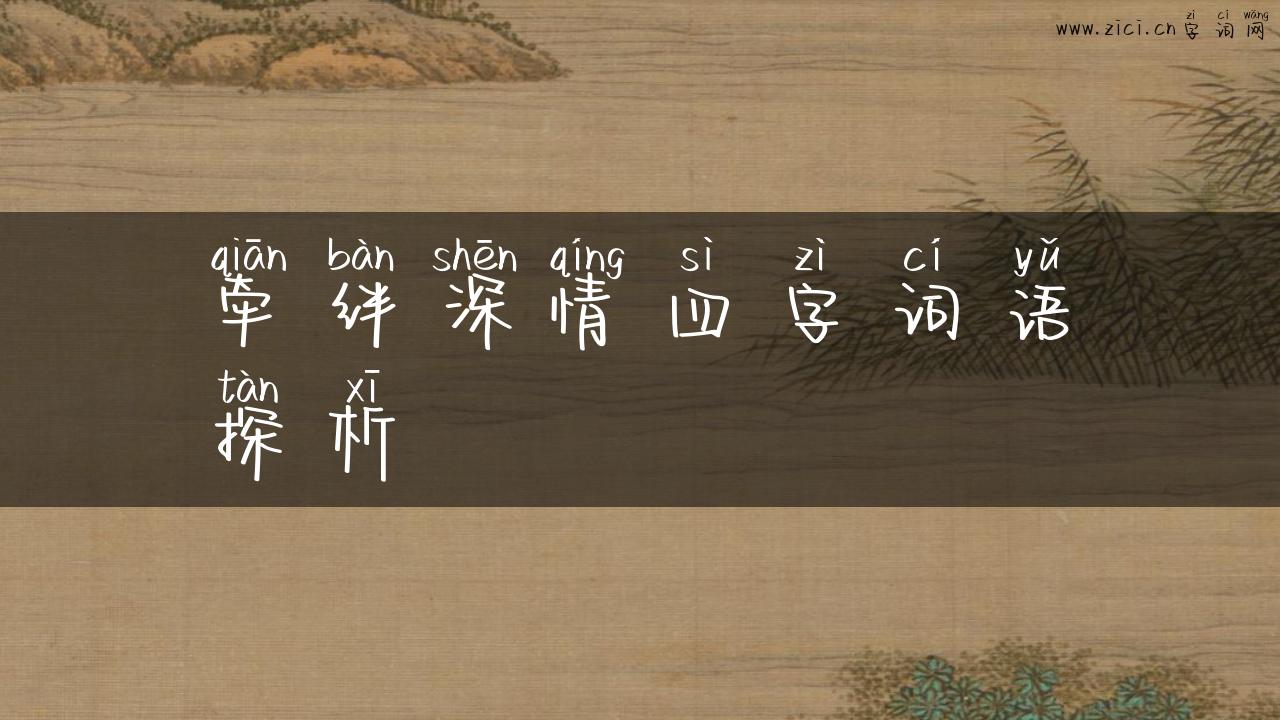 zì cí wǎng
www.zici.cn字词网
qiān bàn shēn qíng sì zì cí yǔ
牵绊深情四字词语
tàn xī
探析